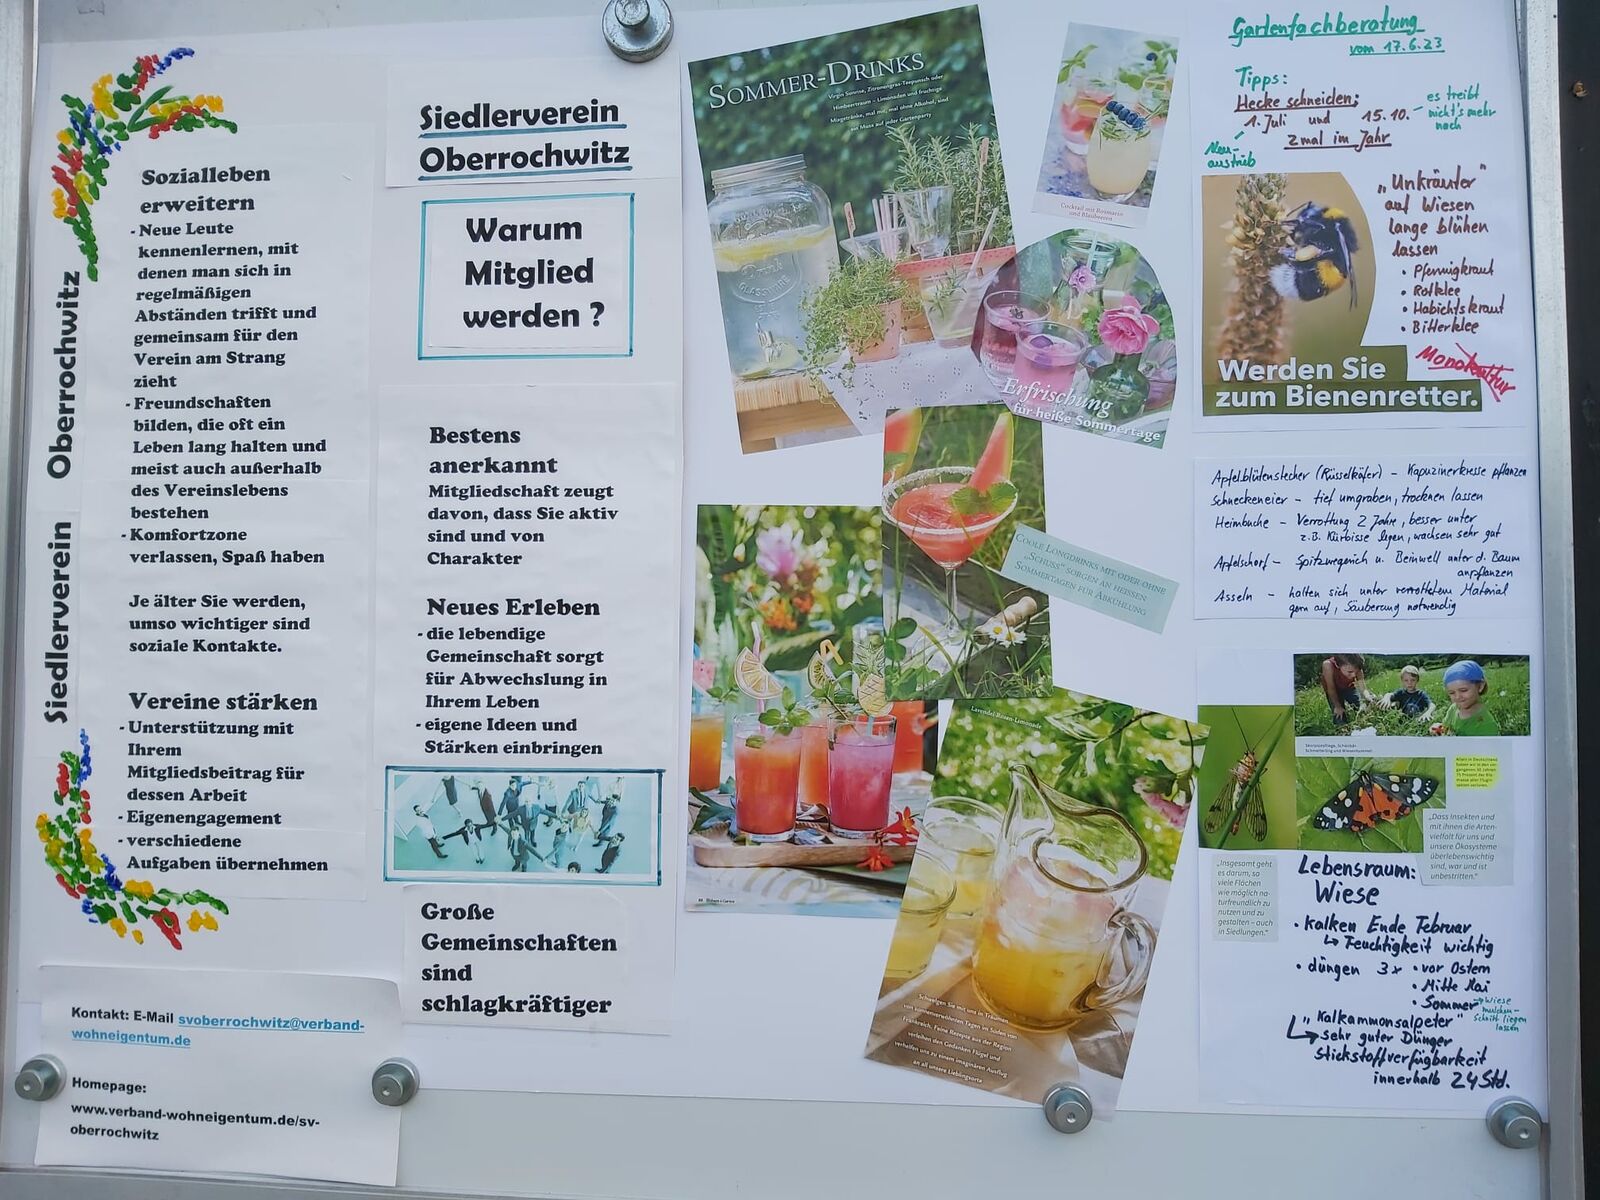 Siedlerverein Oberrochwitz
Sozialleben
erweitern
- Neue Leute
kennenlernen, mit
denen man sich in
regelmäßigen
Abständen trifft und
gemeinsam für den
Verein am Strang
zieht
- Freundschaften
bilden, die oft ein
Leben lang halten und
meist auch außerhalb
des Vereinslebens
bestehen
- Komfortzone
verlassen, Spaß haben
Je älter Sie werden,
umso wichtiger sind
soziale Kontakte.
Vereine stärken
- Unterstützung mit
Ihrem
Mitgliedsbeitrag für
dessen Arbeit
- Eigenengagement
- verschiedene
Aufgaben übernehmen
Kontakt: E-Mail svoberrochwitz@verband-
wohneigentum.de
Homepage:
www.verband-wohneigentum.de/sv-
oberrochwitz
Siedlerverein
Oberrochwitz
Warum
Mitglied
werden ?
Bestens
anerkannt
Mitgliedschaft zeugt
davon, dass Sie aktiv
sind und von
Charakter
Neues Erleben
- die lebendige
Gemeinschaft sorgt
für Abwechslung in
Ihrem Leben
- eigene Ideen und
Stärken einbringen
Große
Gemeinschaften
sind
schlagkräftiger
SOMMER-DRINKS
Virgin Sunrise, Zitronengras-Teepunsch oder
Himbeertraum – Limonaden und fruchtige
Mixgetränke, mal mit, mal ohne Alkohol, sind
ein Muss auf jeder Gartenparty
Cocktail mit Rosmarin
und Blaubeeren
Erfrischung
für heiße Sommertage
COOLE LONGDRINKS MIT ODER OHNE
„SCHUSS" SORGEN AN HEISSEN
SOMMERTAGEN FÜR ABKÜHLUNG
Lavendel-Rosen-Limonade
Schwelgen Sie mit uns in Träumen
von sonnenverwöhnten Tagen im Süden von
Frankreich. Feine Rezepte aus der Region
verleihen den Gedanken Flügel und
verhelfen uns zu einem imaginären Ausflug
an all unsere Lieblingsorte
Gartenfachberatung
vom 17.6.23
Tipps:
Hecke schneiden:
1. Juli und 15.10. – es treibt
nicht's mehr
nach
2mal im Jahr
Neu-
austrieb
„Unkräuter"
auf Wiesen
lange blühen
lassen
• Pfennigkraut
• Rotklee
• Habichtskraut
• Bitterklee
Monokultur
Werden Sie
zum Bienenretter.
Apfelblütenstecher (Rüsselkäfer) – Kapuzinerkresse pflanzen
Schneckeneier – tief umgraben, trocknen lassen
Heimbuche – Verrottung 2 Jahre, besser unter
z.B. Kürbisse legen, wachsen sehr gut
Apfelschorf – Spitzwegerich u. Beinwell unter d. Baum
anpflanzen
Asseln – halten sich unter verrottetem Material
gern auf, Säuberung notwendig
Allein in Deutschland
haben wir in den ver-
gangenen 30 Jahren
75 Prozent der Bio-
masse aller Flugin-
sekten verloren.
„Dass Insekten und
mit ihnen die Arten-
vielfalt für uns und
unsere Ökosysteme
überlebenswichtig
sind, war und ist
unbestritten."
„Insgesamt geht
es darum, so
viele Flächen
wie möglich na-
turfreundlich zu
nutzen und zu
gestalten – auch
in Siedlungen."
Lebensraum:
Wiese
• Kalken Ende Februar
↳ Feuchtigkeit wichtig
• düngen 3x • vor Ostern
• Mitte Mai
• Sommer → Wiese
mulchen –
Schnitt liegen
lassen
„Kalkammonsalpeter"
↳ sehr guter Dünger
Stickstoffverfügbarkeit
innerhalb 24 Std.